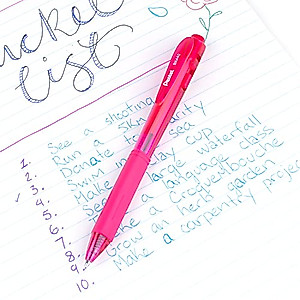 ucket
List
Pentel
1. See a shooting
2. Run a 5KM
3. Donate to charity
4. Swim in sea
5. Make clay cup
6. See a waterfall
7. Take a language class
8. Make a Croquetbouche
9. Grow an herb garden
10. Make a carpentry proje